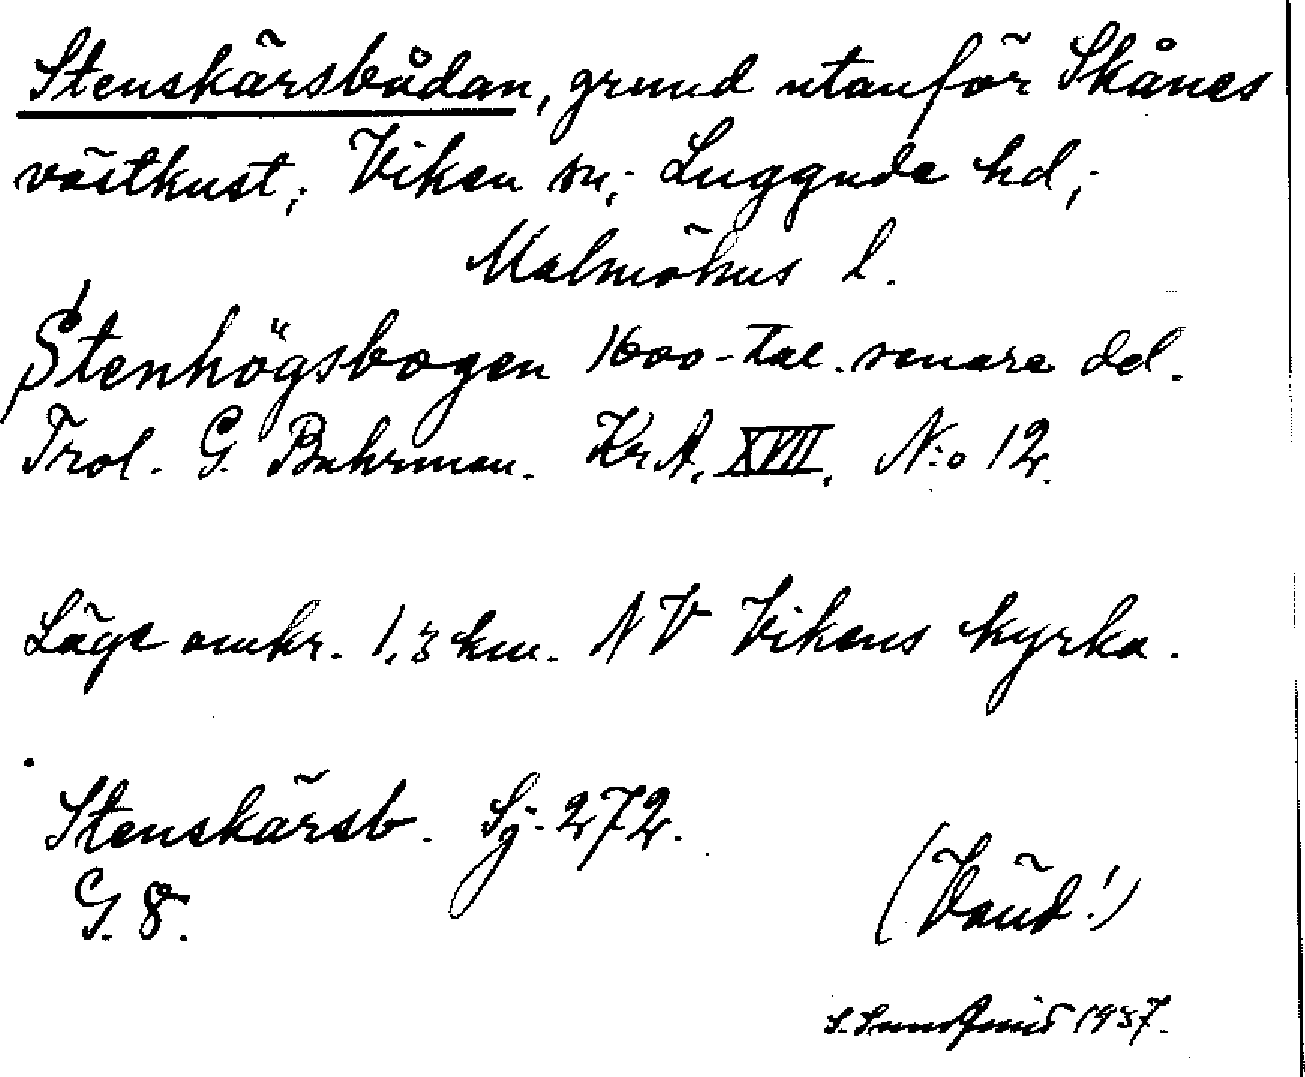 Stenskärsbådan, grund utanför Skånes
västkust; Viken sn; Luggude hd;
Malmöhus l.
Stenhögsbogen 1600-tal. senare del.
Trol. G. Buhrman. Kr.A. XVII. N:o 12.
Läge omkr. 1,3 km. NV Vikens kyrka.
Stenskärsb. Sj. 272.
G. 8.
(Vänd!)
1937.